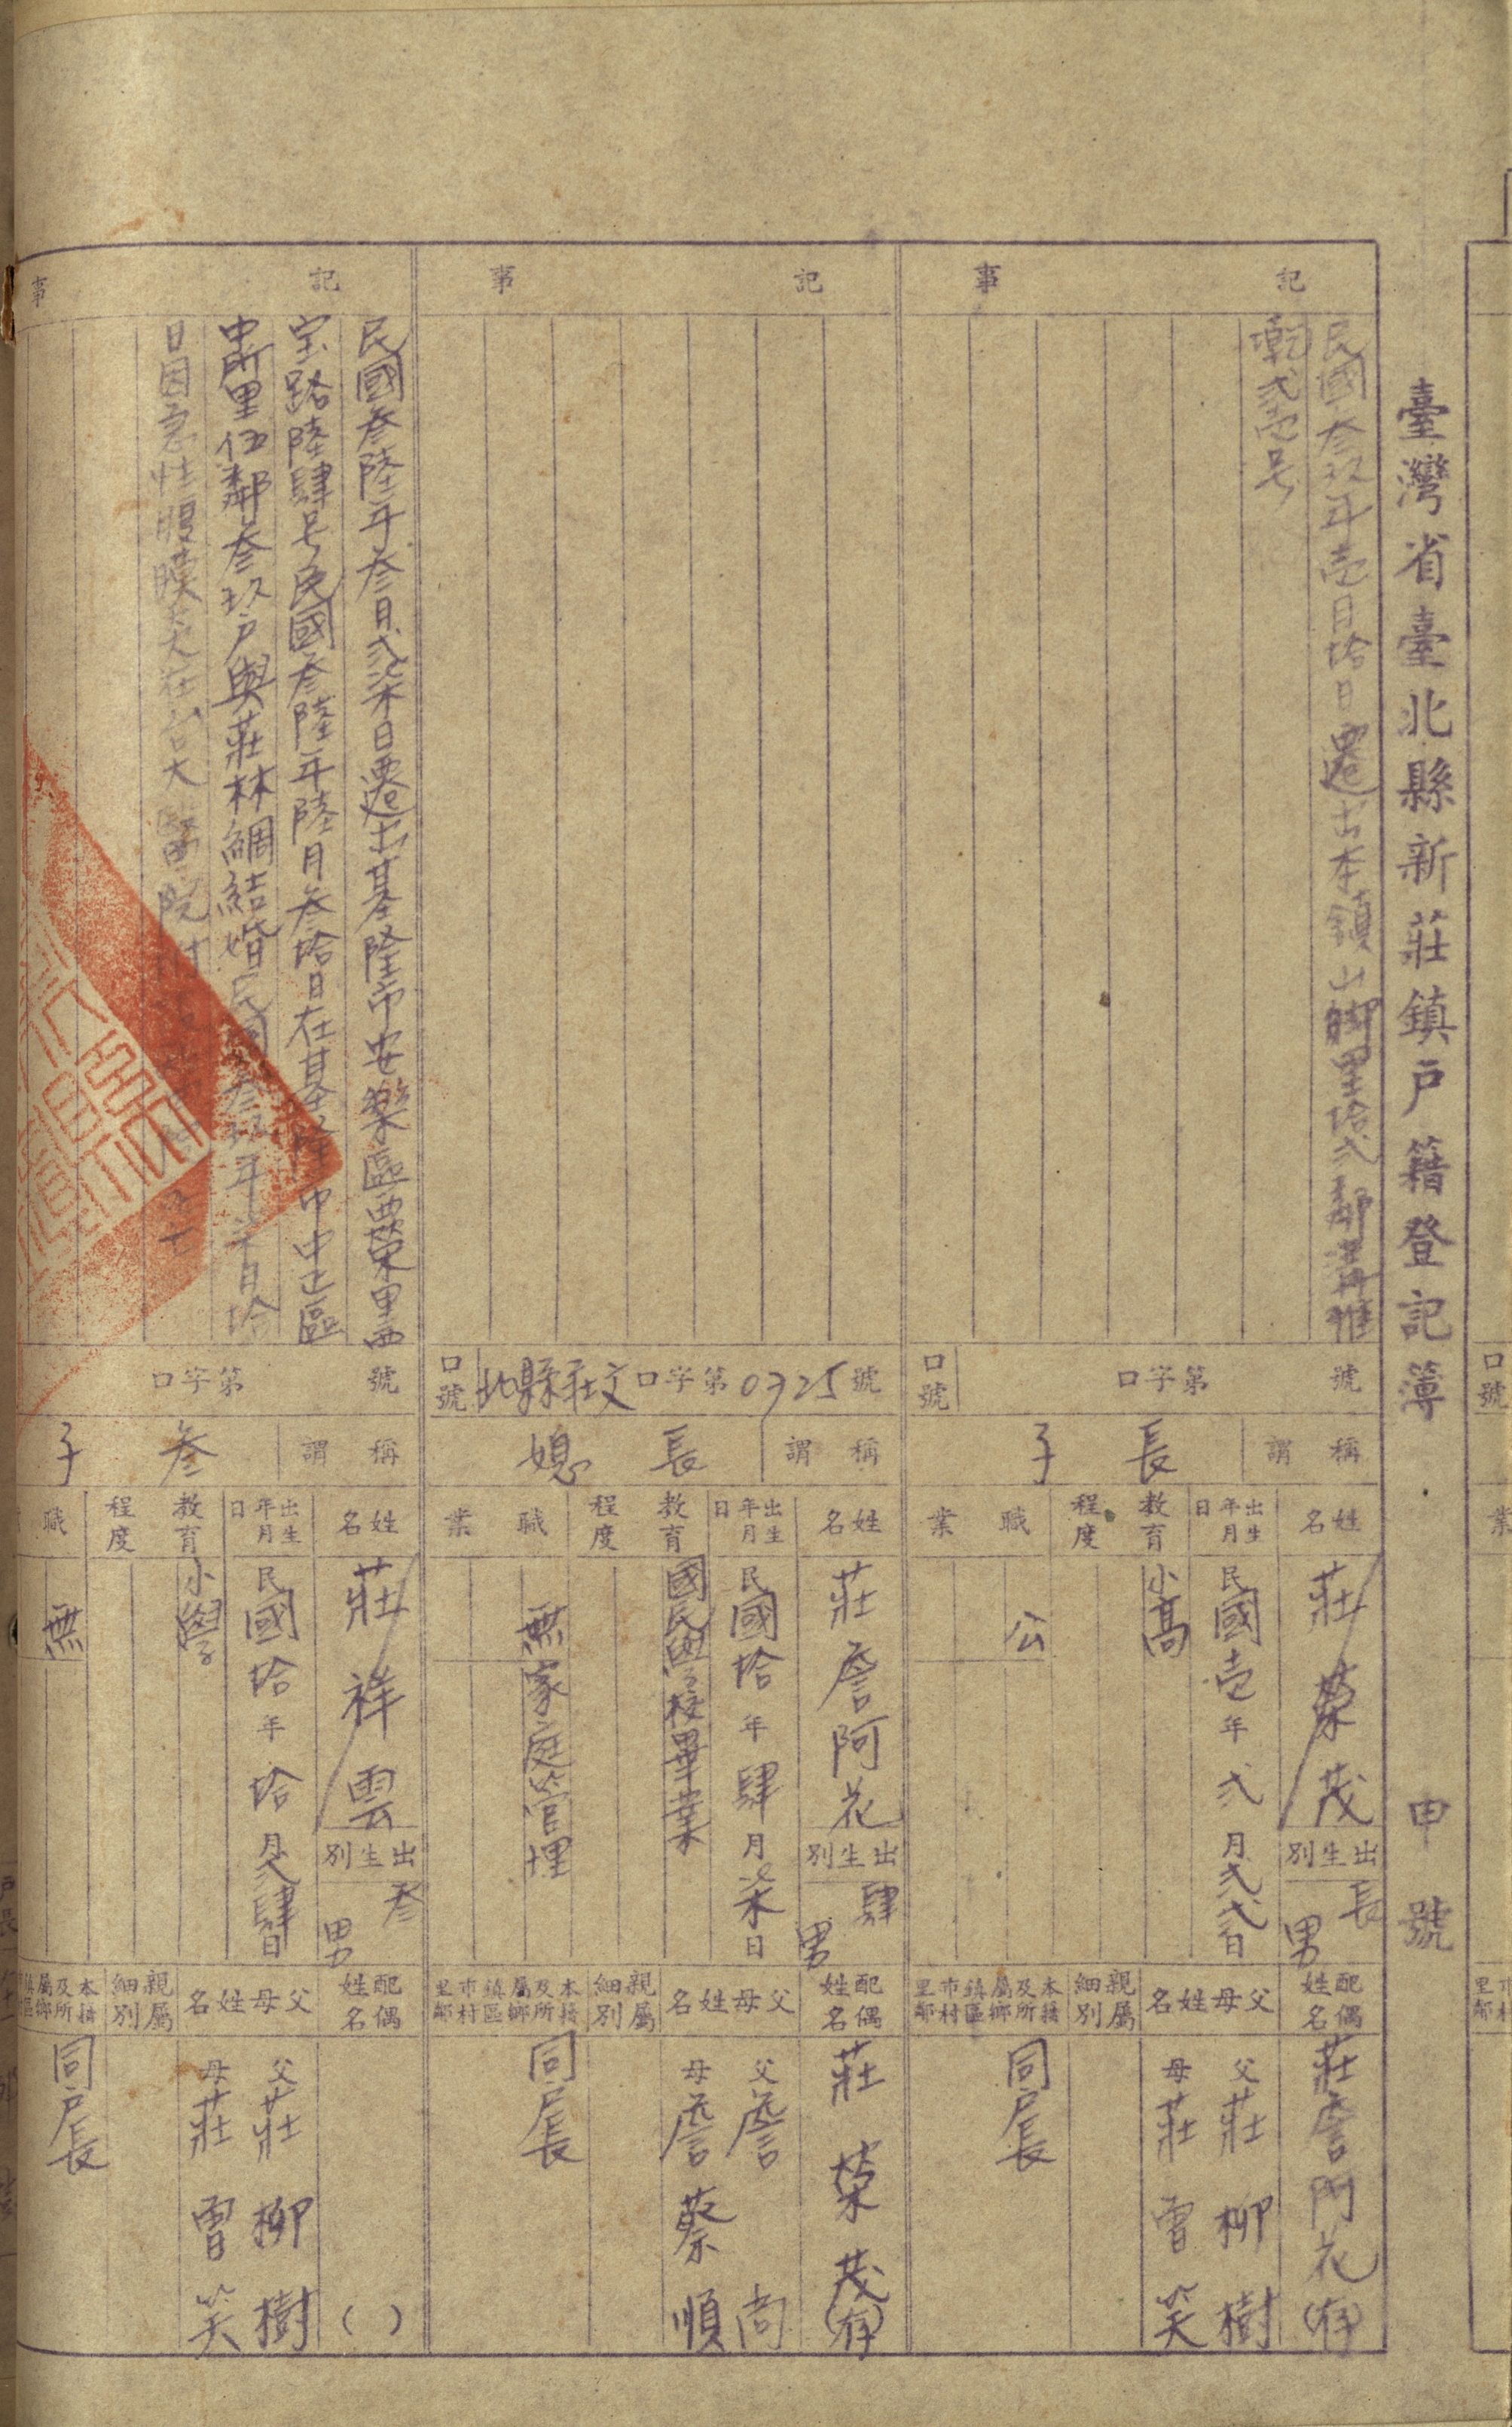 臺灣省臺北縣新莊鎮戶籍登記簿
申號
記事
民國叁玖年壹月拾日遷出本鎮山腳里拾弍鄰
弍壹号
口號
口字第號
稱謂
長子
姓名
莊榮茂
出生別
長男
出生年月日
民國壹年弍月弍弍日
教育程度
小高
職業
公
配偶姓名
莊詹阿花(存)
父母姓名
父莊柳樹
母莊曾笑
親屬細別
本籍及所屬鄉鎮區市村里鄰
同戶長
記事
口號
北縣社文口字第0325號
稱謂
長媳
姓名
莊詹阿花
出生別
肆男
出生年月日
民國拾年肆月柒日
教育程度
國民學校畢業
職業
無
家庭管理
配偶姓名
莊榮茂(存)
父母姓名
父詹尚
母詹蔡順
親屬細別
本籍及所屬鄉鎮區市村里鄰
同戶長
記事
民國叁陸年叁月弍柒日遷出基隆市安樂區西榮里西
宝路陸肆号民國叁陸年陸月叁拾日在基隆市中正區
中里伍鄰叁玖戶與莊林鯛結婚民國叁玖年日拾
日因急性腹膜炎在台大醫院
口字第號
稱謂
叁子
姓名
莊祥雲
出生別
叁男
出生年月日
民國拾年拾月弍肆日
教育程度
小學
職
無
配偶姓名
( )
父母姓名
父莊柳樹
母莊曾笑
親屬細別
本籍及所屬鄉鎮區
同戶長